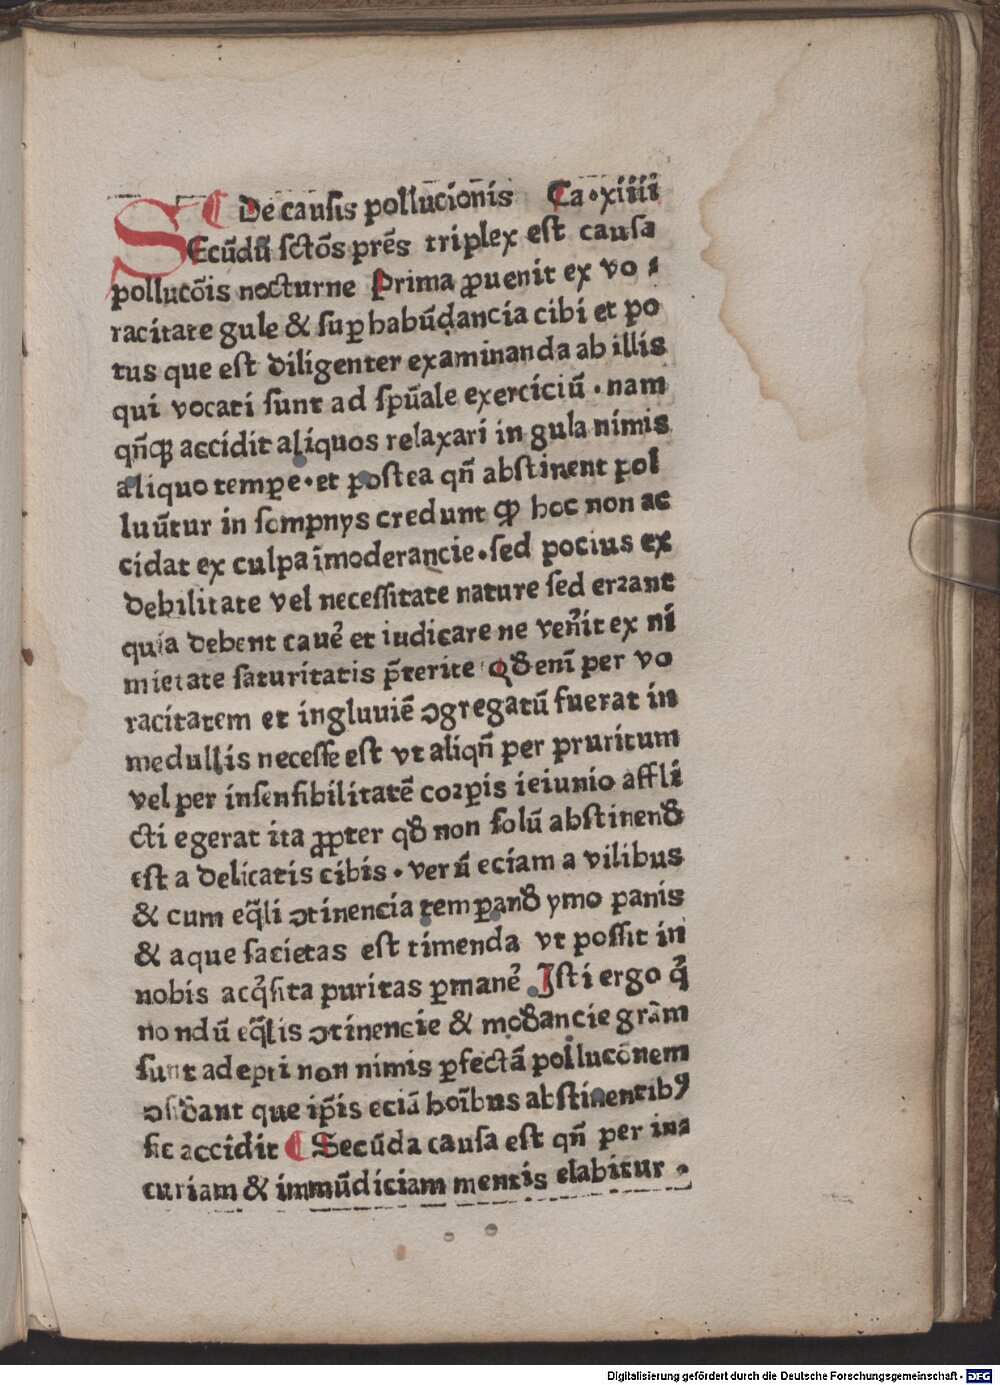 ¶ De causis pollucionis̄ Ca·xiiii
Secūdū sctōs prēs triplex est causa
pollucōis nocturne Prima ꝓuenit ex vo⸗
racitate gule & suꝑhabūdancia cibi et po
tus que est diligenter examinanda ab illis
qui vocati sunt ad spūale exerciciū · nam
qn̄qꝫ accidit aliquos relaxari in gula nimis
aliquo tempe · et postea qn̄ abstinent pol
luūtur in sompnys credunt ꝙ hoc non ac
cidat ex culpa īmoderancie · sed pocius ex
debilitate vel necessitate nature sed errant
quia debent caue᷑ et iudicare ne vēn᷑it ex ni
mietate saturitatis p̄terite Qđ enī per vo
racitatem et ingluuiē ↄgregatū fuerat in
medullis necesse est vt aliqn̄ per pruritum
vel per insensibilitatē corꝑis ieiunio affli
cti egerat ita ꝓpter qđ non solū abstinenđ
est a delicatis cibis · verū eciam a vilibus
& cum eq̄li ↄtinencia temꝑanđ ymo panis
& aque sacietas est timenda vt possit in
nobis acq̇sita puritas ꝑmane᷑ Isti ergo q̇
nondū eq̄lis ↄtinencie & mođancie grām
sunt adepti non nimis ꝑfectā pollucōnem
ↄsiđant que ip̄is eciā hoībus abstinentibꝰ
sic accidit ¶ Secūda causa est qn̄ per ina
curiam & immūdiciam mentis elabitur ·
Digitalisierung gefördert durch die Deutsche Forschungsgemeinschaft - DFG